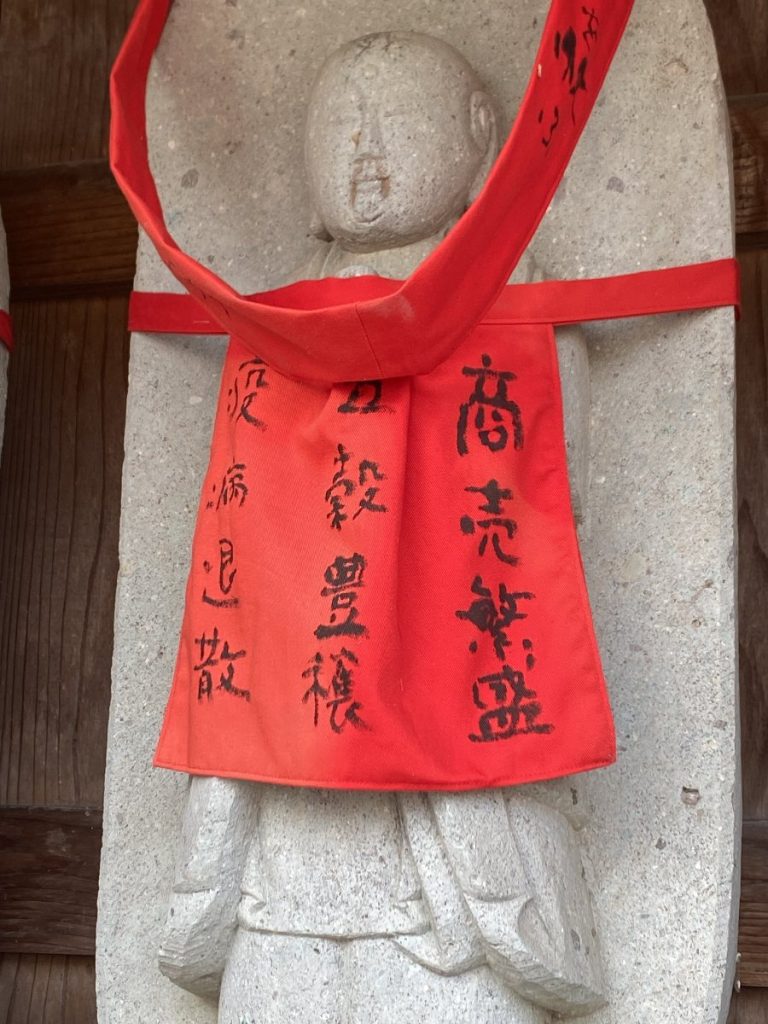 商売繁盛
五穀豊穣
疫病退散